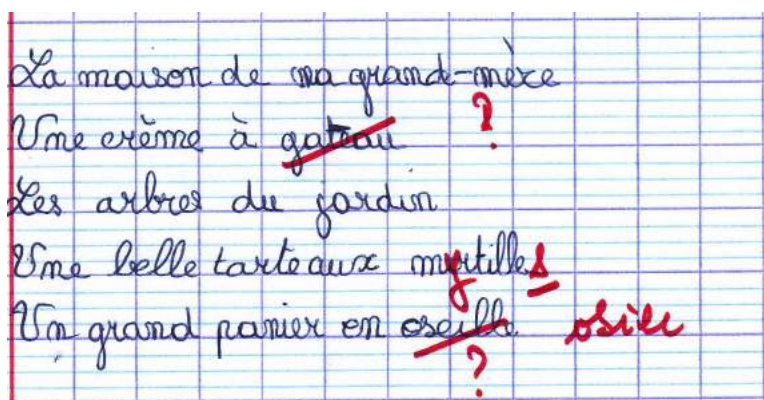 La maison de ma grand-mère
Une crème à gateau ?
Les arbres du jardin
Une belle tarte aux myrtilles
Un grand panier en oseille osier
?